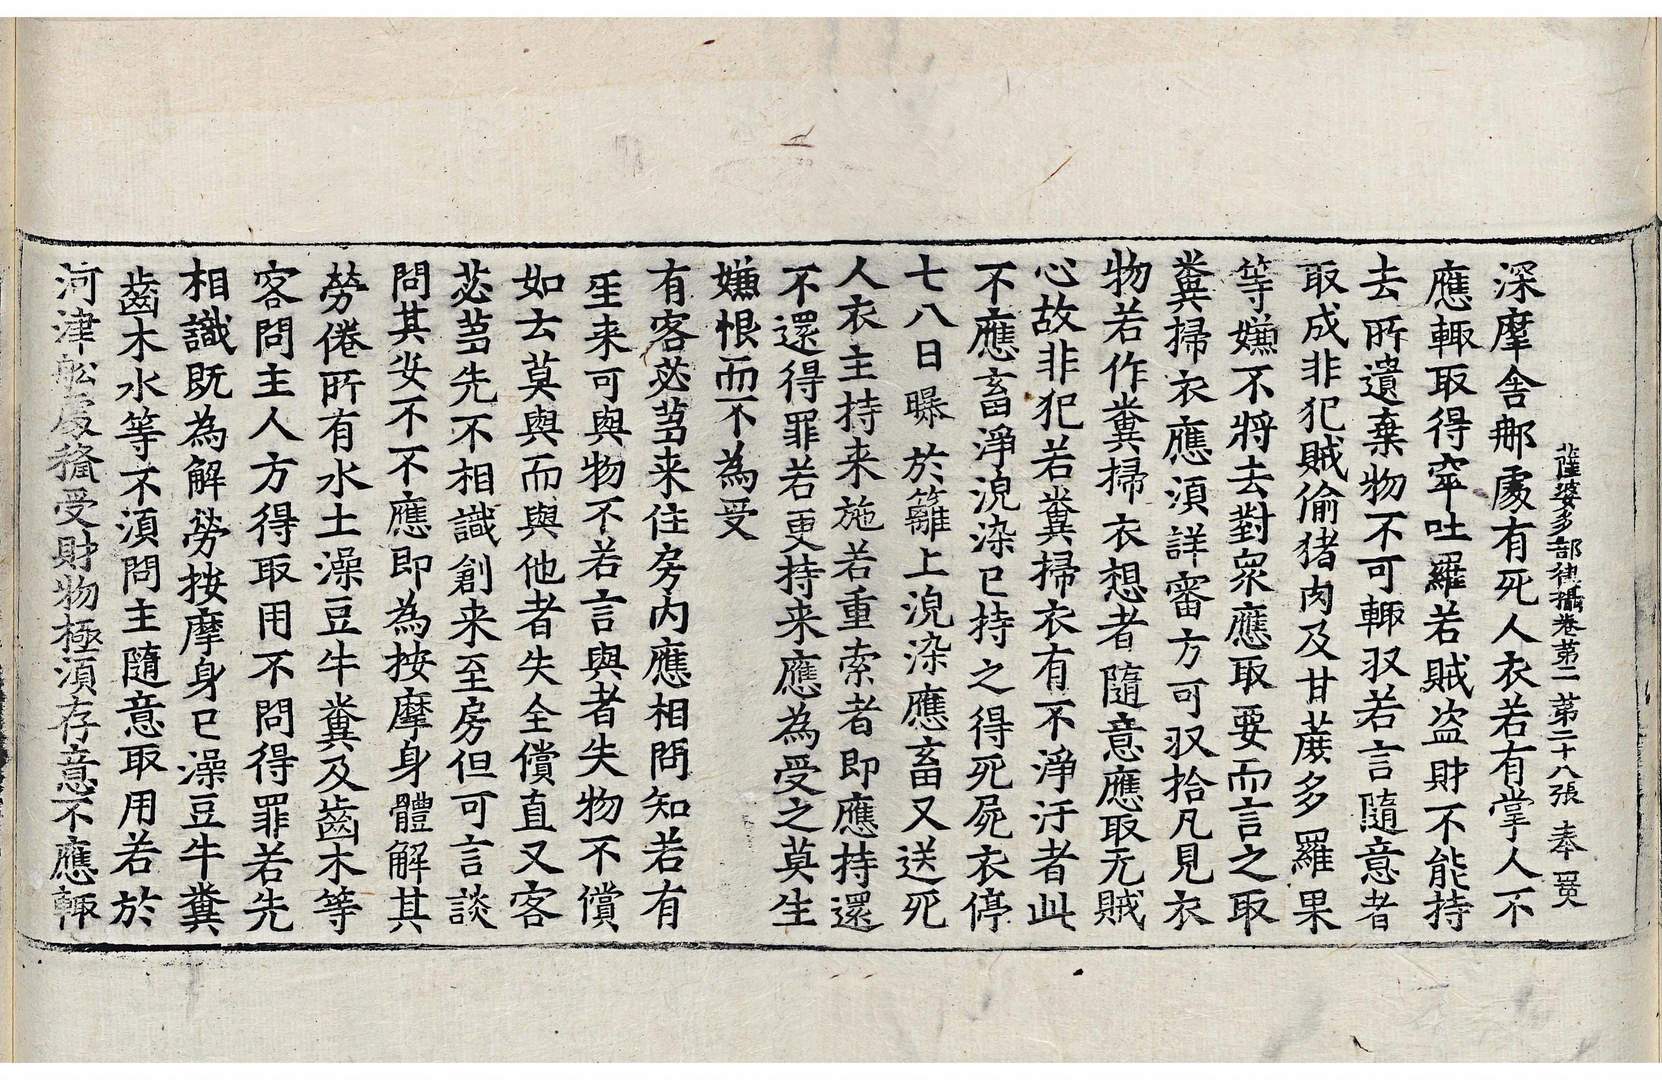 薩婆多部律攝卷第二 第二十八張 奉
深摩舍那處有死人衣若有掌人不
應輙取得窣吐羅若賊盗財不能持
去所遺棄物不可輙収若言隨意者
取成非犯賊偷猪肉及甘蔗多羅果
等嫌不將去對衆應取要而言之取
糞掃衣應湏詳審方可収拾凡見衣
物若作糞掃衣想者隨意應取无賊
心故非犯若糞掃衣有不淨汙者此
不應畜淨浣染已持之得死屍衣停
七八日曝於籬上浣染應畜又送死
人衣主持来施若重索者即應持還
不還得罪若更持来應為受之莫生
嫌恨而不為受
有客苾芻来住房內應相問知若有
人来可與物不若言與者失物不償
如去莫與而與他者失全償直又客
苾芻先不相識創来至房但可言談
問其安不不應即為按摩身體解其
勞倦所有水土澡豆牛糞及齒木等
客問主人方得取用不問得罪若先
相識既為解勞按摩身已澡豆牛糞
齒木水等不湏問主隨意取用若於
河津𦨴處稅受財物極湏存意不應輙